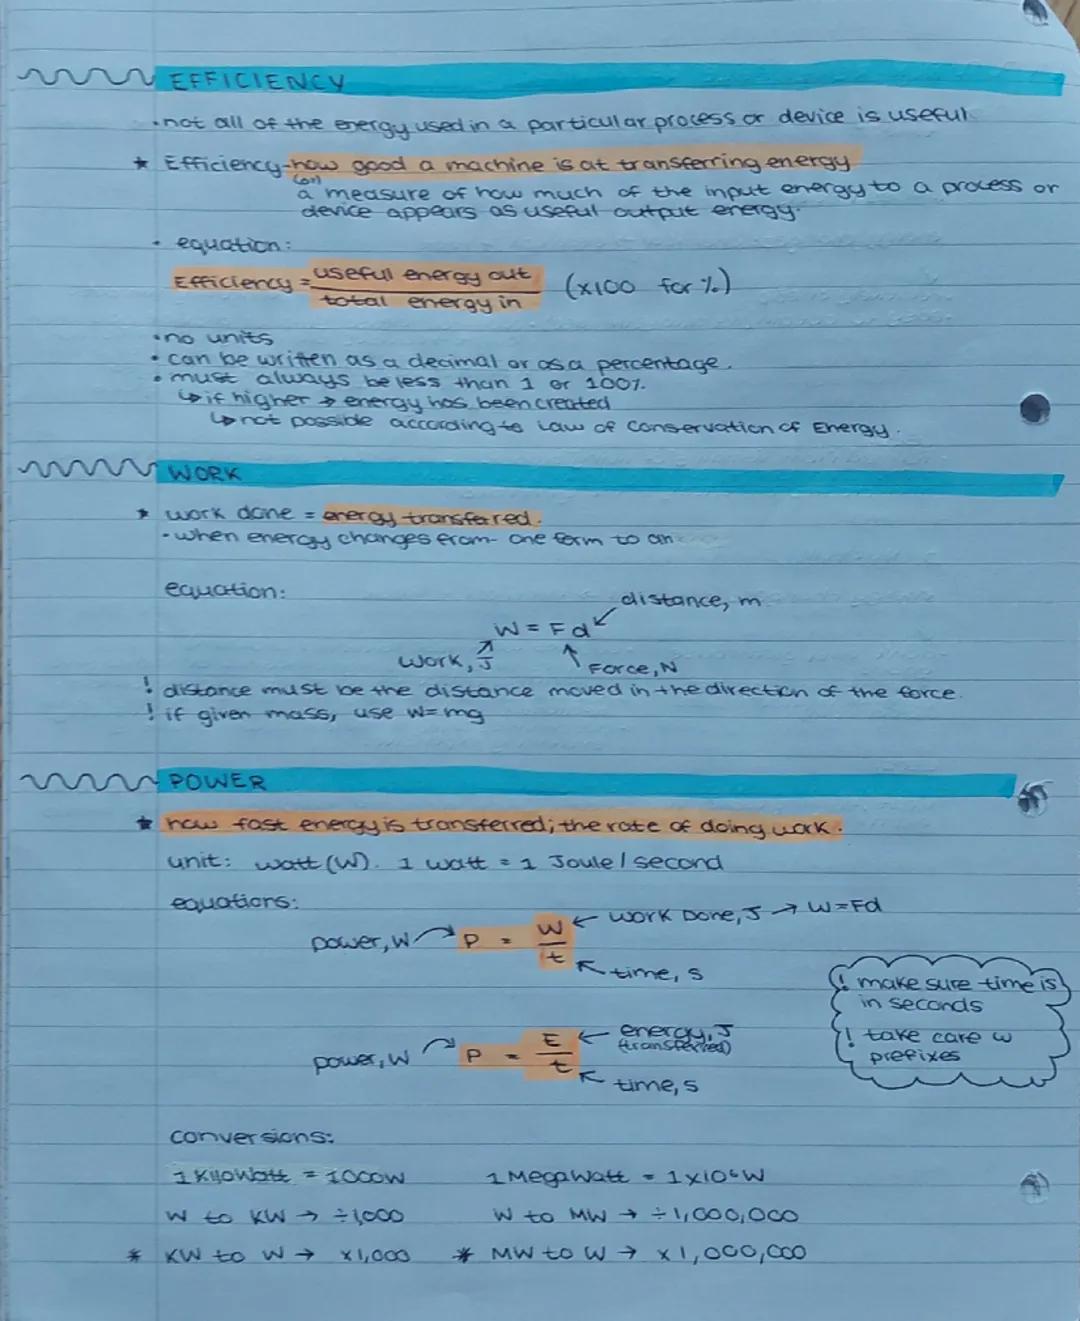 EFFICIENCY
•not all of the energy used in a particular process or device is useful
* Efficiency-how good a machine is at transferring energy
(or)
a measure of how much of the input energy to a process or
device appears as useful output energy.
• equation:
Efficiency = useful energy out / total energy in (x100 for %)
•no units
•can be written as a decimal or as a percentage.
•must always be less than 1 or 100%.
↳if higher → energy has been created
↳not possible according to Law of Conservation of Energy.
WORK
* work done = energy transferred.
-when energy changes from one form to an
equation:
distance, m
W = Fd
Work, J
Force, N
! distance must be the distance moved in the direction of the force.
! if given mass, use W=mg
POWER
* how fast energy is transferred; the rate of doing work.
unit: watt (W). 1 watt = 1 Joule / second
equations:
power, W P = W/t ← Work Done, J → W=Fd
time, s
! make sure time is
in seconds
! take care w
prefixes
power, W P = E/t ← energy, J
(transferred)
time, s
conversions:
1 Kilowatt = 1000W 1 Megawatt = 1x10⁶W
W to KW → ÷1,000 W to MW → ÷1,000,000
* KW to W → x1,000 * MW to W → x1,000,000